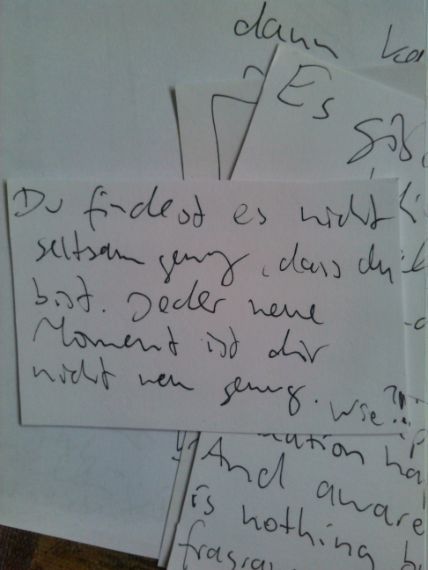 dann
Es
Du findest es nicht
seltsam genug, dass du
bist. Jeder neue
Moment ist dir
nicht neu genug.
Wie?!
And aware
is nothing b